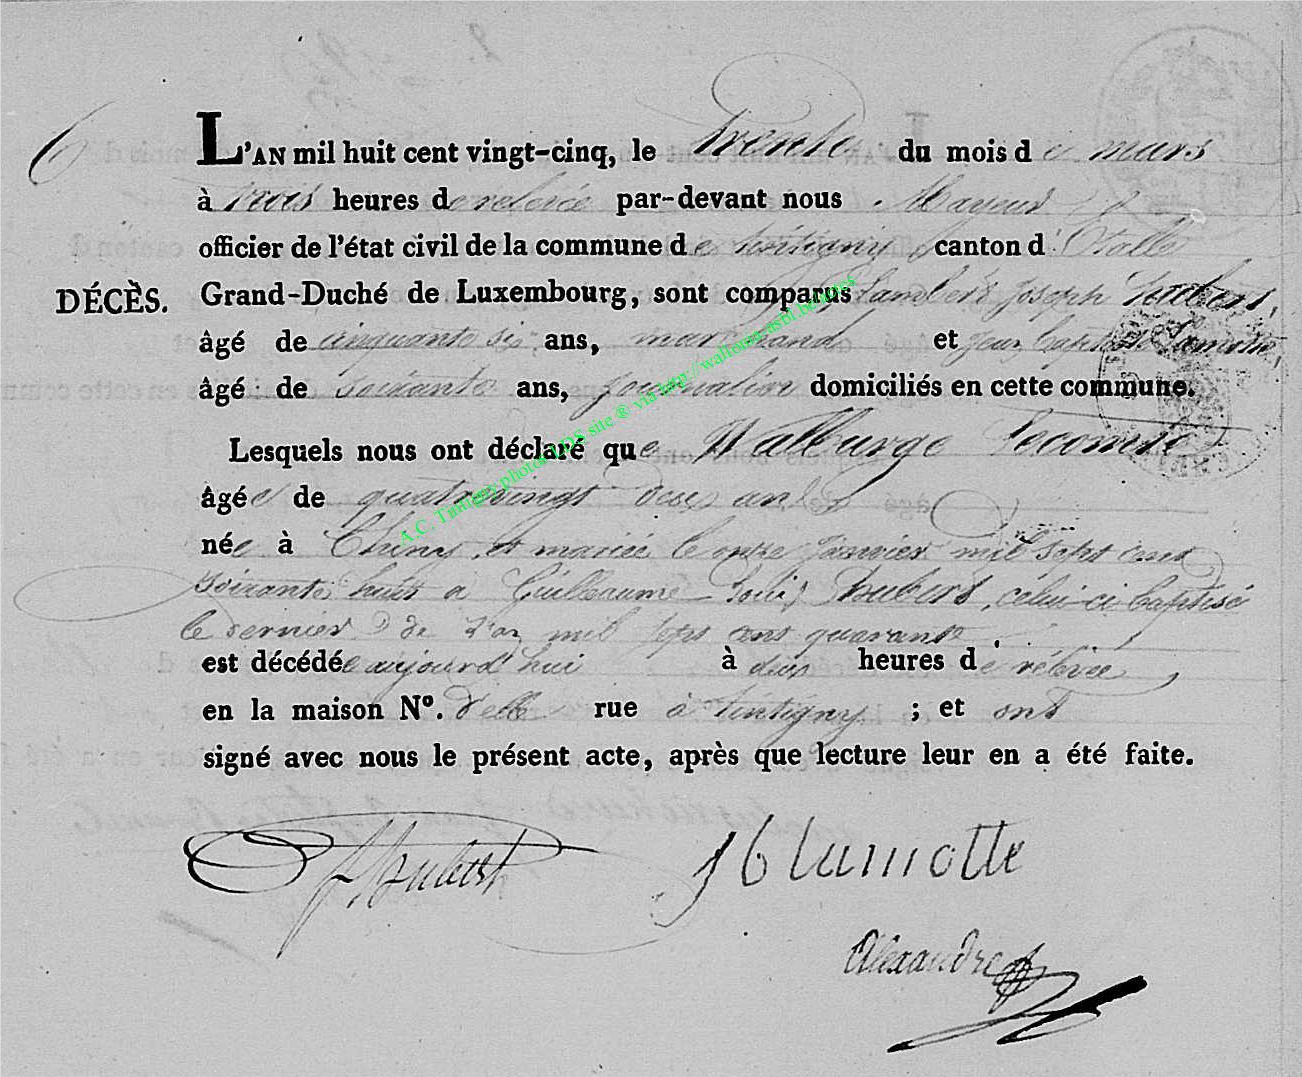 6
L'AN mil huit cent vingt-cinq, le trente du mois de mars
à trois heures de relevée par-devant nous Mayeur
officier de l'état civil de la commune de tintigny, canton d'Etalle
DÉCÈS. Grand-Duché de Luxembourg, sont comparus Lambert Joseph hubert,
âgé de cinquante six ans, marchand et jean baptiste Lamotte,
âgé de soixante ans, journalier domiciliés en cette commune.
Lesquels nous ont déclaré que Walburge Lecomte
âgée de quatrevingt deux ans
née à Chiny, et mariée le onze janvier mil sept cent
soixante huit à Guillaume Louis hubert, celui-ci baptisé
le dernier de l'an mil sept cent quarante
est décédée aujourd'hui à deux heures de relevée
en la maison N°. d'elle rue à tintigny ; et ont
signé avec nous le présent acte, après que lecture leur en a été faite.
hubert
J b lamotte
Alexandre
A.C. Tintigny photos LDS site ® via http://wallonia.asbl.be/actes